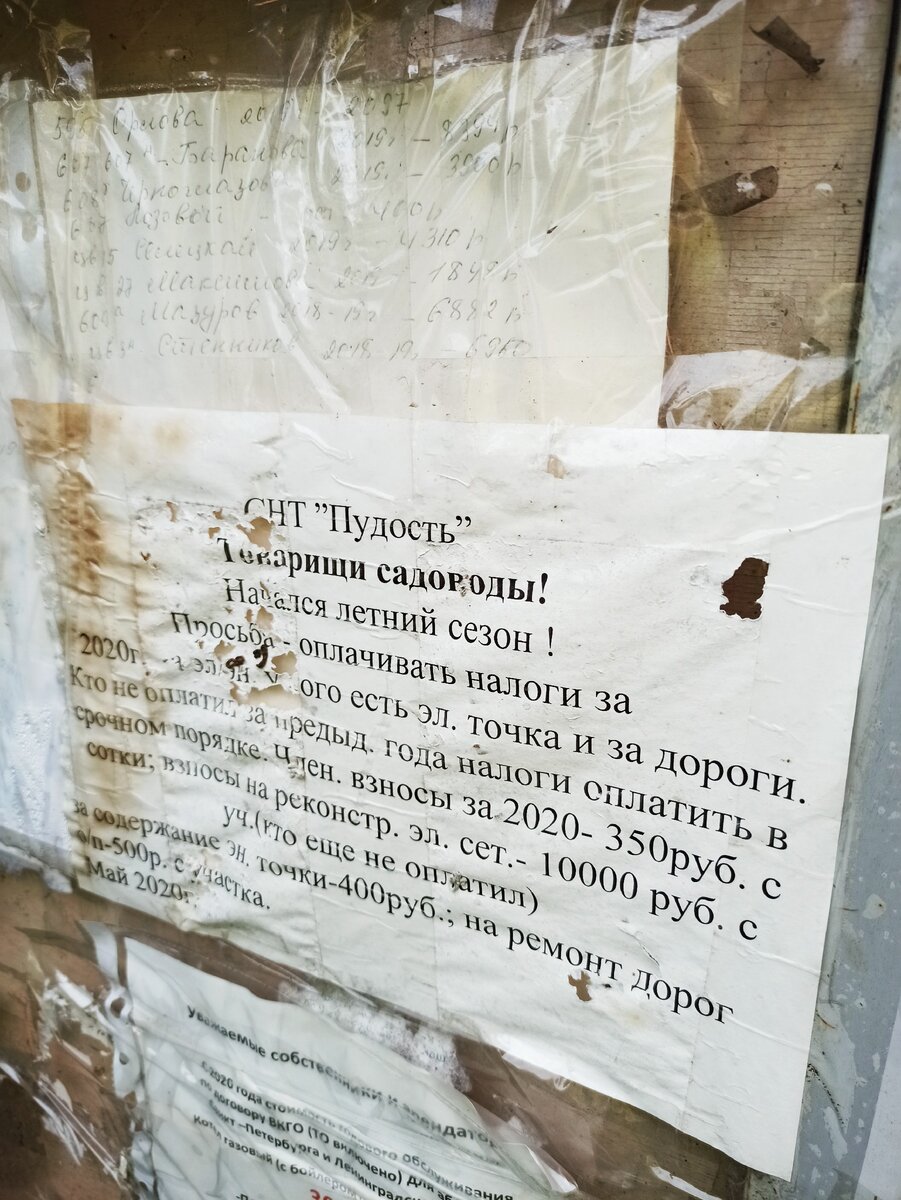 Орлова 2019г - 2097
Баранова 2019г - 8394р
2019г. - 3900р
Лозовой - 400р
2019г - 4310р
Максимова 2019 - 1849р
Мазуров 2018-19г - 6882р
Стенников 2018-19г -
СНТ "Пудость"
Товарищи садоводы!
Начался летний сезон !
Просьба - оплачивать налоги за
2020г. за эл/эн. у кого есть эл. точка и за дороги.
Кто не оплатил за предыд. года налоги оплатить в
срочном порядке. Член. взносы за 2020- 350руб. с
сотки; взносы на реконстр. эл. сет.- 10000 руб. с
уч.(кто еще не оплатил)
за содержание эн. точки-400руб.; на ремонт дорог
о/п-500р. с участка.
Май 2020г.
Уважаемые собственники и арендатор
С 2020 года стоимость годового обслуживания
по договору ВКГО (ТО включено) для аб
Санкт -Петербурга и Ленинградск
Котел газовый (с бойлером